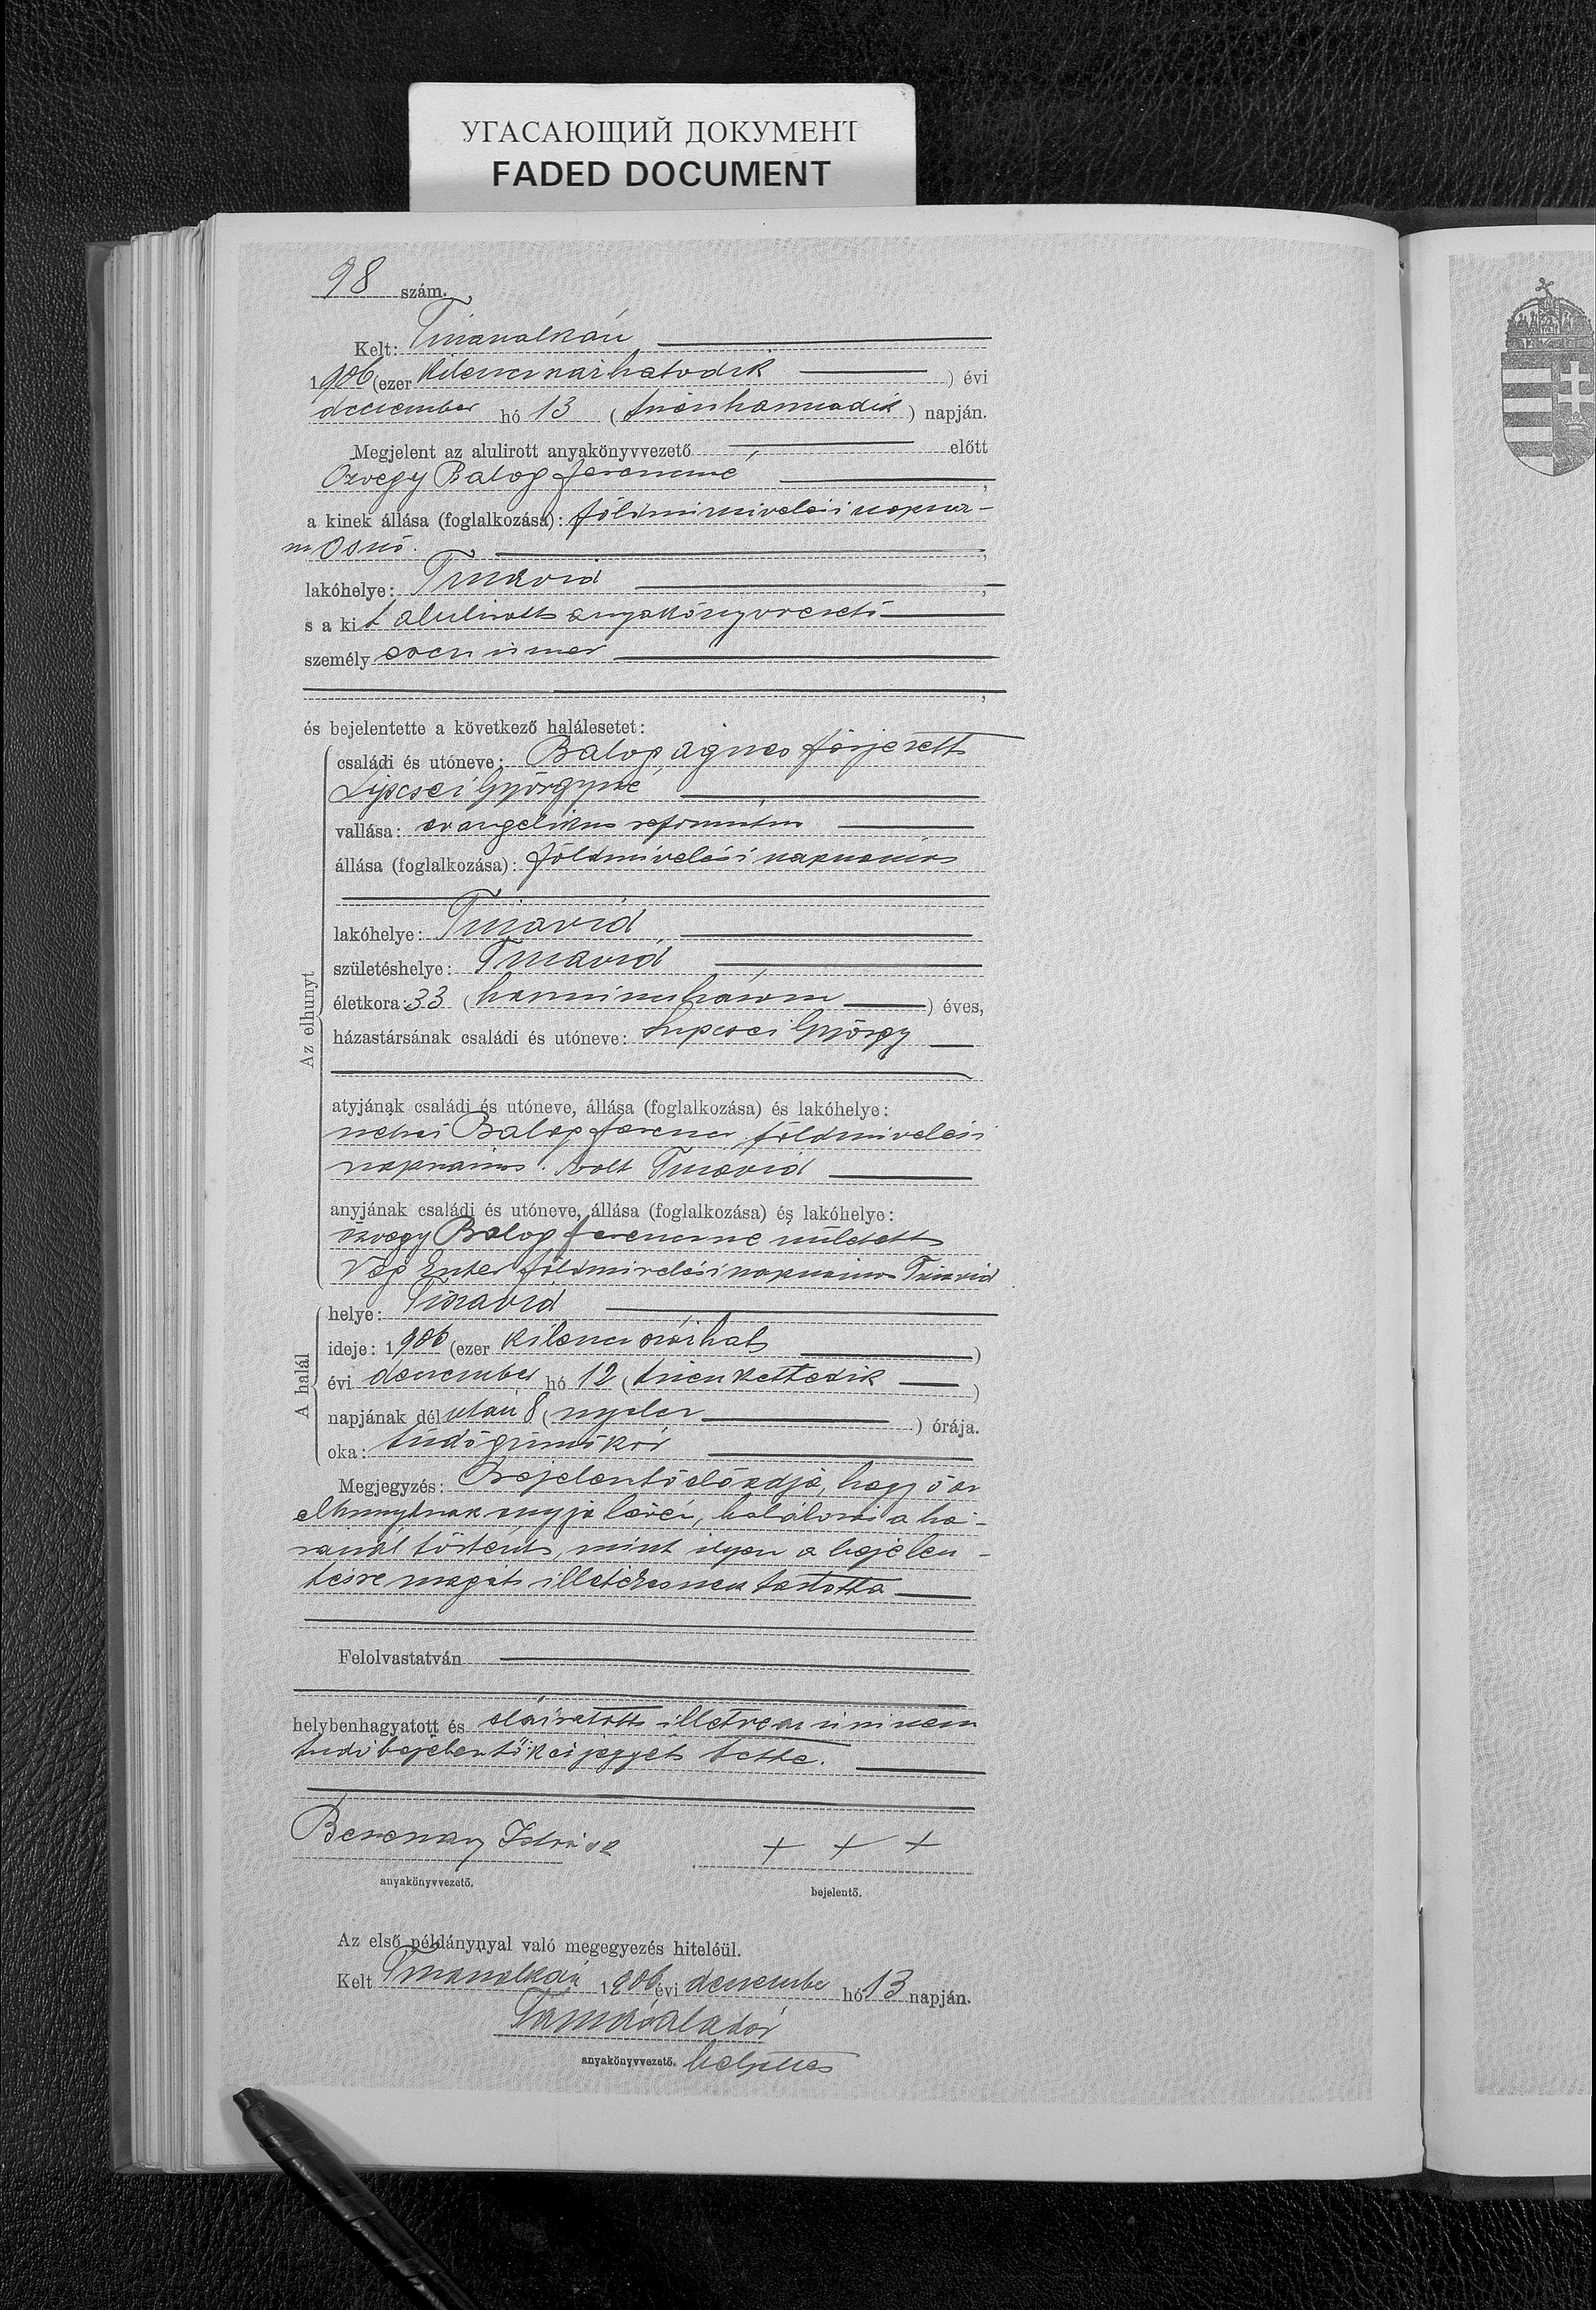 УГАСАЮЩИЙ ДОКУМЕНТ
FADED DOCUMENT
98 szám.
Kelt: Tiszasalkán
1906 (ezer kilenczszázhatodik) évi
deczember hó 13 (tizenharmadik) napján.
Megjelent az alulirott anyakönyvvezető előtt
Özvegy Balog Ferenczné,
a kinek állása (foglalkozása): földmivelési napszá-
mosnő.
lakóhelye: Tiszavid,
s a kit alulirott anyakönyvvezető
személyesen ismer
és bejelentette a következő halálesetet:
Az elhunyt
családi és utóneve: Balog Ágnes férjezett
Lipcsei Györgyné
vallása: evangelikus református
állása (foglalkozása): földmivelési napszámos
lakóhelye: Tiszavid
születéshelye: Tiszavid
életkora: 33 (harminczhárom) éves,
házastársának családi és utóneve: Lipcsei György
atyjának családi és utóneve, állása (foglalkozása) és lakóhelye:
néhai Balog Ferencz földmivelési
napszámos volt Tiszavid
anyjának családi és utóneve, állása (foglalkozása) és lakóhelye:
özvegy Balog Ferenczné született
Vég Eszter földmivelési napszámos Tiszavid
A halál
helye: Tiszavid
ideje: 1906 (ezer kilenczszázhat)
évi deczember hó 12 (tizenkettedik)
napjának délután 8 (nyolcz) órája.
oka: tüdőgümőkór
Megjegyzés: Bejelentő előadja, hogy ő az
elhunytnak anyja lévén, halálozás a há-
zánál történt, mint ilyen a bejelen-
tésre magát illetékesnek tartotta
Felolvastatván
helybenhagyatott és aláiratott illetve az irni nem
tudó bejelentő kézjegyét tette.
István + + +
anyakönyvvezető.
bejelentő.
Az első példánynyal való megegyezés hiteléül.
Kelt Tiszasalkán 1906 évi deczember hó 13 napján.
Aladár
anyakönyvvezető. helyettes